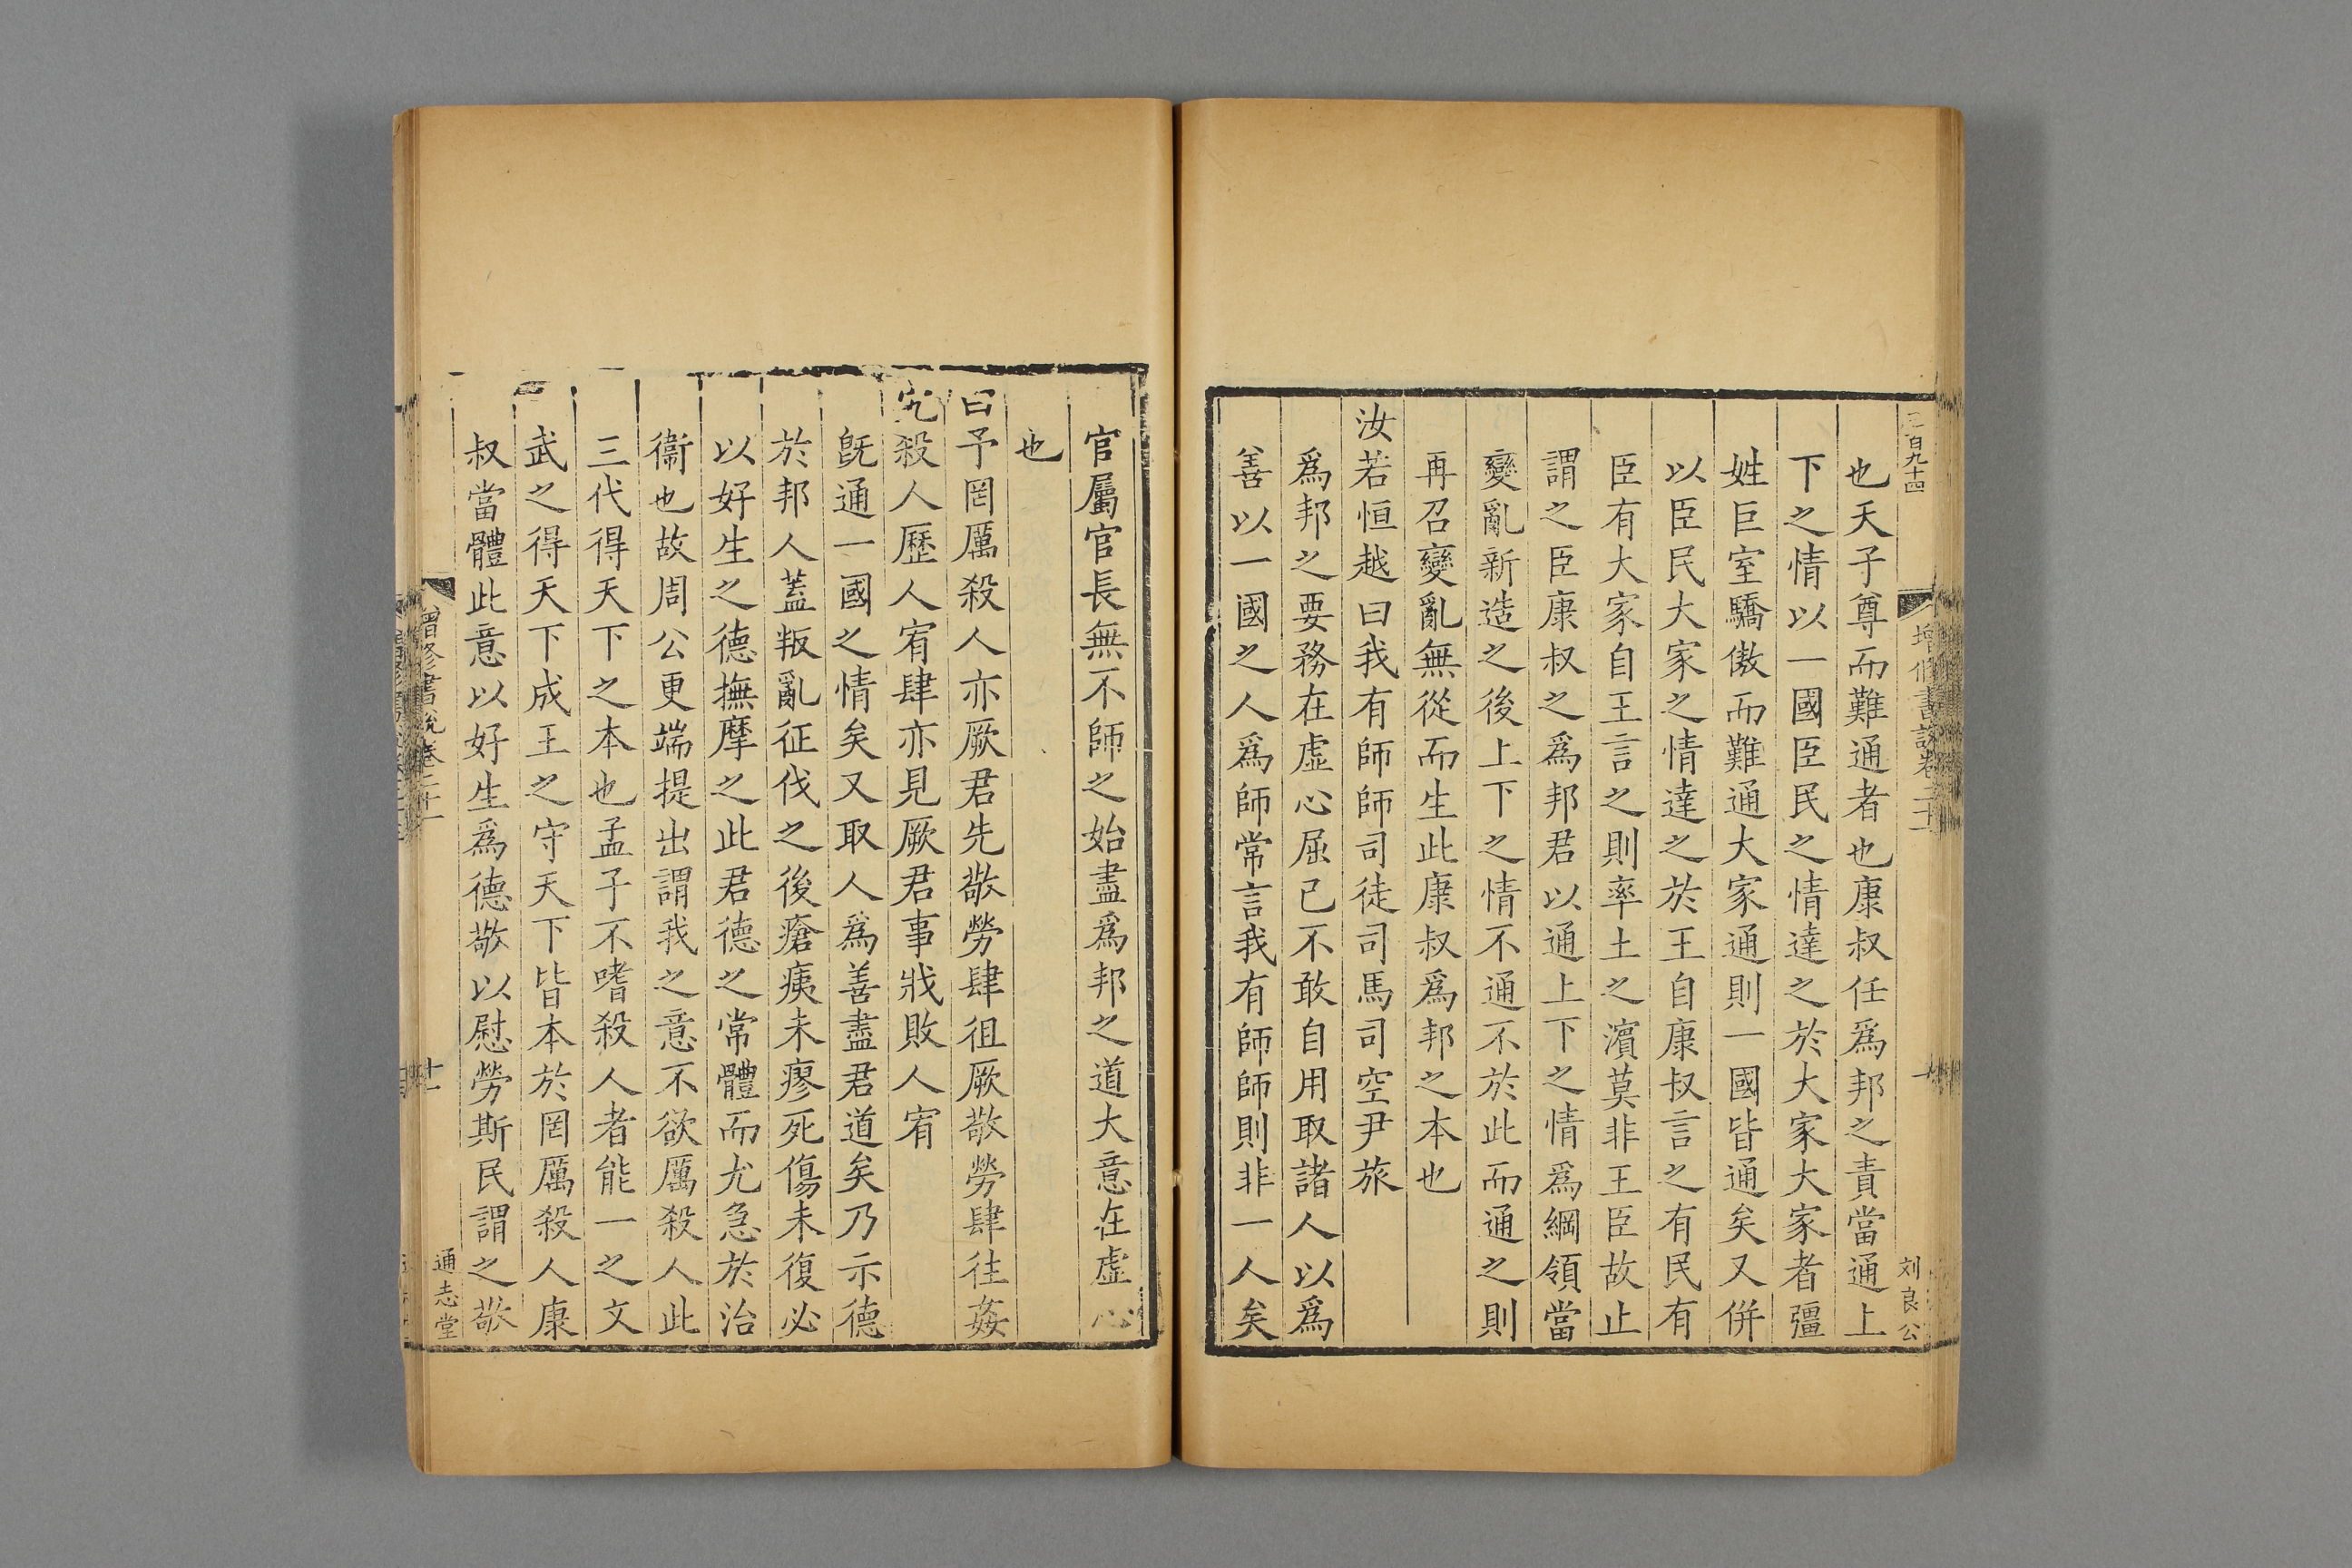 百九十四
刘良公
也天子尊而難通者也康叔任爲邦之責當通上
下之情以一國臣民之情達之於大家大家者彊
姓巨室驕傲而難通大家通則一國皆通矣又併
以臣民大家之情達之於王自康叔言之有民有
臣有大家自王言之則率土之濵莫非王臣故止
謂之臣康叔之爲邦君以通上下之情爲綱領當
變亂新造之後上下之情不通不於此而通之則
再召變亂無從而生此康叔爲邦之本也
汝若恒越曰我有師師司徒司馬司空尹旅
爲邦之要務在虛心屈已不敢自用取諸人以爲
善以一國之人爲師常言我有師師則非一人矣
官屬官長無不師之始盡爲邦之道大意在虛心
也
曰予罔厲殺人亦厥君先敬勞肆徂厥敬勞肆往姦
宄殺人歷人宥肆亦見厥君事戕敗人宥
旣通一國之情矣又取人爲善盡君道矣乃示德
於邦人蓋叛亂征伐之後瘡痍未瘳死傷未復必
以好生之德撫摩之此君德之常體而尤急於治
衞也故周公更端提出謂我之意不欲厲殺人此
三代得天下之本也孟子不嗜殺人者能一之文
武之得天下成王之守天下皆本於罔厲殺人康
叔當體此意以好生爲德敬以慰勞斯民謂之敬
增修書說卷二十一
十一
通志堂